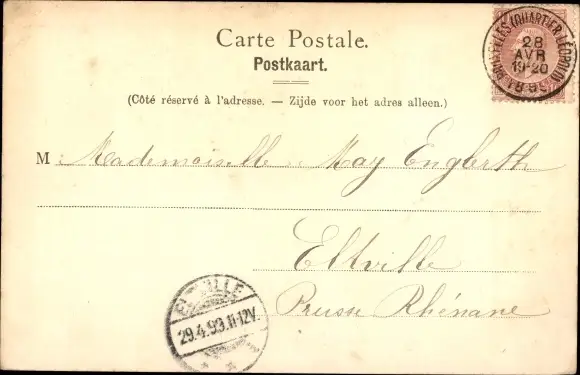 Carte Postale.
Postkaart.
(Côté réservé à l'adresse. — Zijde voor het adres alleen.)
M Mademoiselle May Englerth
Eltville
Prusse Rhénane
BRUXELLES (QUARTIER LÉOPOLD)
28
AVR
19-20
ELTVILLE
29.4.99.11-12V.